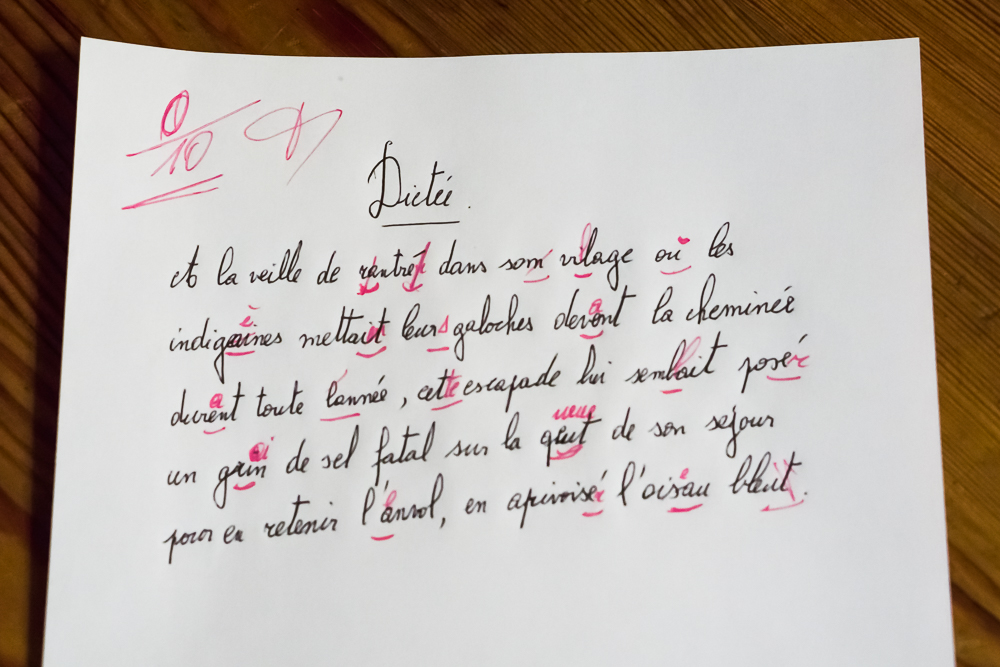 0/10
Dictée.
et la veille de rantrét dans som vilage où les
indigaines mettait leurs galoches devent la cheminée
durent toute lannée, cette escapade lui semblait poser
un grin de sel fatal sur la queue de son séjour
pour en retenir l'anvol, en apivoisé l'oisau bleut.